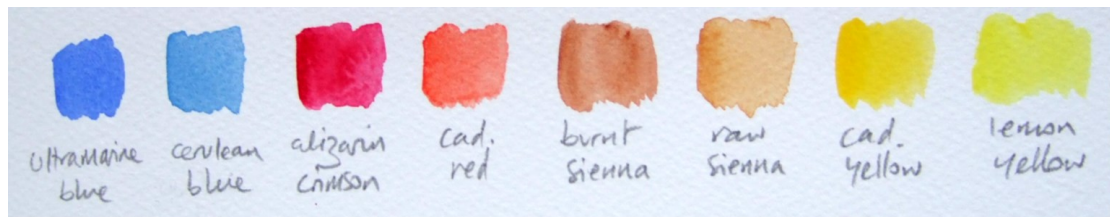 ultramarine
blue
cerulean
blue
alizarin
crimson
cad.
red
burnt
sienna
raw
sienna
cad.
yellow
lemon
yellow